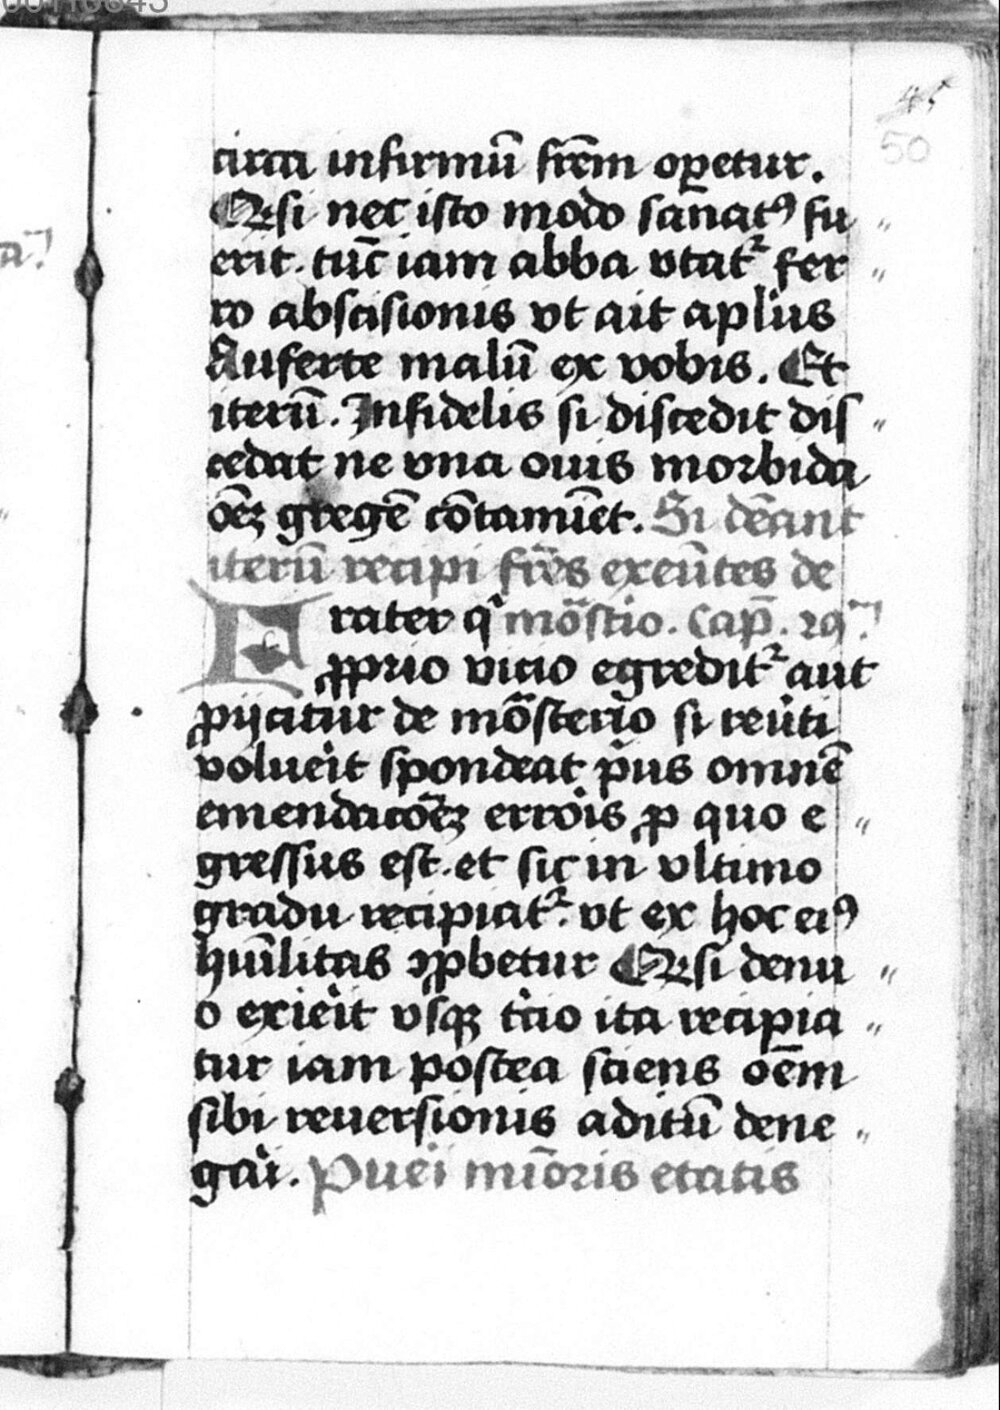 45
50
circa infirmū frēm oꝑetur.
Qꝛ si nec isto modo sanatꝰ fu〃
erit. tūc iam abba vtatᷣ fer〃
ro abscisionis vt ait aplūs
Auferte malū ex vobis. Et
iterū. Infidelis si discedit dis〃
cedat ne vna ouis morbida
oēꝫ gregē cōtamīet. Si dēant
iterū recipi frēs exeūtes de
Frater qͥ mōstio. Cap̄. 29ᵐ.
ꝓprio vicio egreditᷣ aut
ꝓijcitur de mōsterio si reūti
volueit spondeat pͥus omnē
emendacōēꝫ errois ꝓ quo e〃
gressus est. et sic in vltimo
gradu recipiatᷣ. vt ex hoc eiꝰ
huīlitas ꝯꝓbetur Qꝛ si denu〃
o exieit vsqꝫ tͨio ita recipia〃
tur iam postea sciens oēm
sibi reuersionis aditū dene〃
gai. Puei mīoris etatis